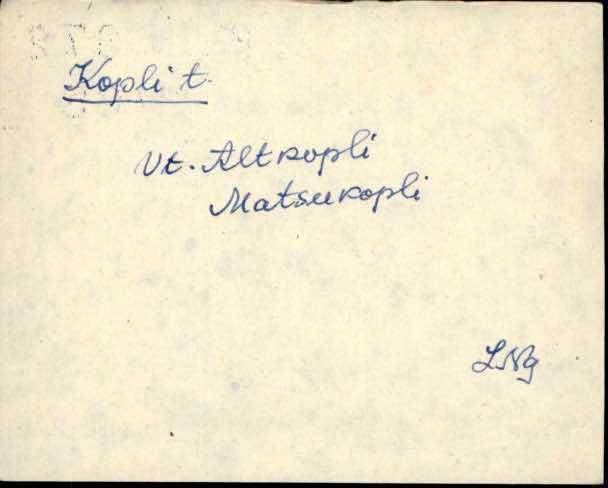 Kopli t.
Vt. Altkopli
Matsukopli
LNg